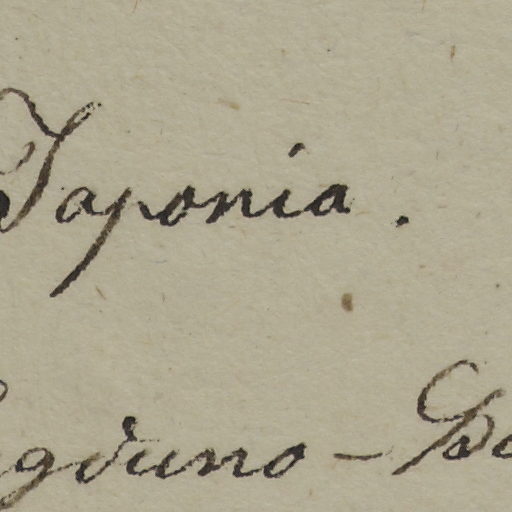 Japonia.
gduno-Ba